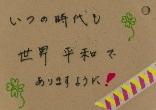 いつの時代も
世界 平和で
ありますように!